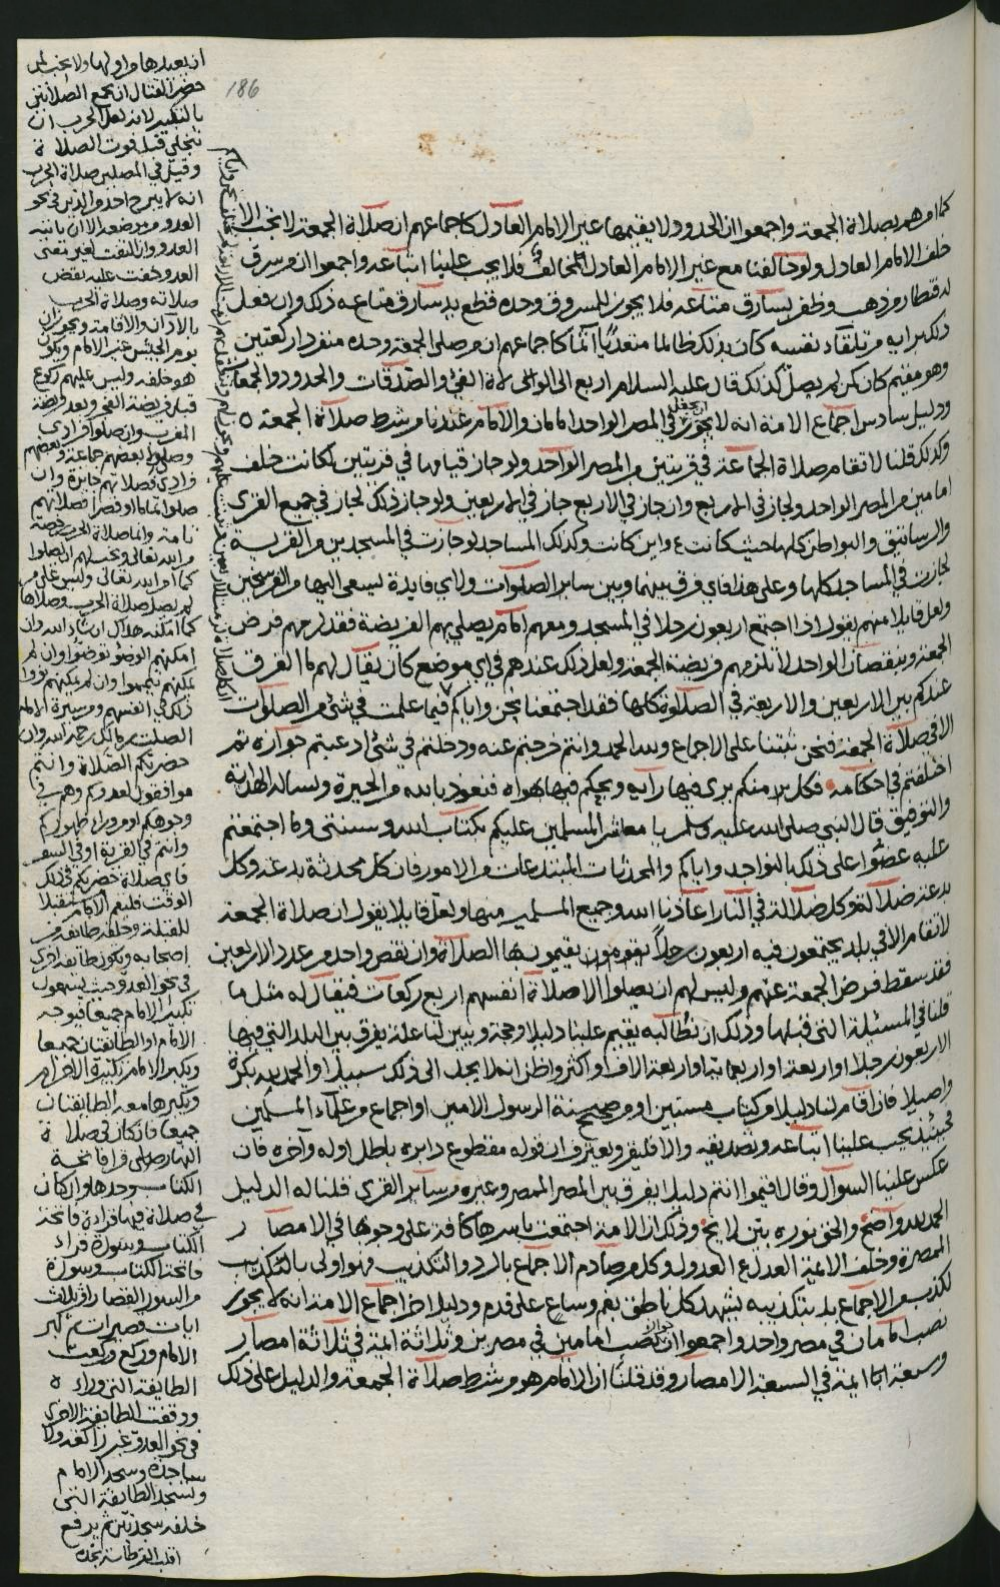 186
كما امرهم بصلاة الجمعة واجمعوا ان الحدود لا يقيمها غير الامام العادل كاجماعهم ان صلاة الجمعة لا تجب الا
خلف الامام العادل ولو خالفنا مع غير الامام العادل فلا يجب علينا اتباعه واجمعوا ان من سرق
له قنطار من ذهب وظفر بسارق متاعه فلا يجوز للمسروق وحده قطع يد سارق متاعه ذلك وان فعل
ذلك برايه من تلقاء نفسه كان بذلك ظالما متعديا آثما كاجماعهم ان من صلى الجمعة وحده منفردا ركعتين
وهو مقيم كان كمن لم يصل كذلك قال عليه السلام اربع الى الولاة الفيء والصدقات والحدود والجمعات
ودليل سادس اجماع الامة انه لا يجوز في المصر الواحد امامان والامام عندنا من شرط صلاة الجمعة ٥
وكذلك قلنا لا تقام صلاة الجماعة في قريتين من المصر الواحد ولو جاز قيامها في قريتين لكانت خلف
امامين من المصر الواحد ولجاز في اربع وان جاز في الاربع جاز في اربعين ولو جاز ذلك لجاز في جميع القرى
والرساتيق والبواطن كلها حيث كانت واين كانت وكذلك المساجد لو جازت في المسجدين من القرية
لجازت في المساجد كلها وعلى هذا فاي فرق بينها وبين سائر الصلوات ولاي فايدة يسعى اليها من الفرسخين
ولعل قايلا منهم يقول اذا اجتمع اربعون رجلا في المسجد ومعهم امام يصلي بهم الفريضة فقد لزمهم فرض
الجمعة وبنقصان الواحد لا تلزمهم فريضة الجمعة ولعل ذلك عندهم في اي موضع كان يقال لهم ما الفرق
عندكم بين الاربعين والاربعة في الصلوات كلها فقد اجتمعنا نحن واياكم فيما علمت في شيء من الصلوات
الا في صلاة الجمعة فنحن ثبتنا على الاجماع ولله الحمد وانتم خرجتم عنه ودخلتم في شيء ادعيتم جوازه ثم
اختلفتم في احكامه فكل منكم يرى فيها رايه ويحكم فيها بهواه فنعوذ بالله من الحيرة ونساله الهداية
والتوفيق قال النبي صلى الله عليه وسلم يا معاشر المسلمين عليكم بكتاب الله وسنتي وما اجتمعتم
عليه عضوا على ذلك بالنواجد واياكم والمحدثات المبتدعات من الامور فان كل محدثة بدعة وكل
بدعة ضلالة وكل ضلالة في النار اعاذنا الله وجميع المسلمين منها ولعل قايلا يقول ان صلاة الجمعة
لا تقام الا في بلد يجتمعون فيه اربعون رجلا يقومون يقيمون بها الصلاة وان نقص واحد من عدد الاربعين
فقد سقط فرض الجمعة عنهم وليس لهم ان يصلوا الا صلاة انفسهم اربع ركعات فيقال له مثل ما
قلنا في المسئلة التي قبلها وذلك ان نطالبه يقيم علينا دليلا وحجة ويبين لنا علة يفرق بين البلد التي فيها
الاربعون رجلا او اربعة او اربعماية او اربعة الاف او اكثر واظن انه لا يجد الى ذلك سبيلا والحمد لله بكرة
واصيلا فان اقام لنا دليلا من كتاب مستبين او من صحيح سنة الرسول الامين او اجماع من علماء المسلمين
فحينئذ يجب علينا اتباعه وتصديقه والا فليقر ويعترف ان قوله مقطوع دابره باطل اوله وآخره فان
عكس علينا السوال وقال اقيموا انتم دليلا يفرق بين المصر الممصر وغيره من سائر القرى قلنا له الدليل
الحمد لله واضح والحق نوره بين لايح وذلك ان الامة اجتمعت باسرها كافة على وجوبها في الامصار
الممصرة وخلف الائمة العدل العدول وكل من صادم الاجماع بالرد والتكذيب فهو اولى بالتكذيب
لتكذيبه الاجماع بل بتكذيبه يشهد كل ناطق بفم وساع على قدم ودليل اخر اجماع الامة انه لا يجوز
نصب امامان في مصر واحد واجمعوا ان جواز نصب امامين في مصرين وثلاثة ايمة في ثلاثة امصار
وسبعة ايمة في السبعة الامصار وقد قلنا ان الامام هو من شرط صلاة الجمعة والدليل على ذلك
ان يعيدها من اولها ولا يجب لمن
حضر القتال ان يجمع الصلاتين
بالتكبير لانه لعل الحرب ان
تنجلي قبل فوت الصلاة
وقيل في المصلين صلاة الحرب
انه لا يبرح احد والذين في نحو
العدو من موضعه الا ان ياتيه
العدو وان التفت لغير معنى
العدو خفت عليه نقض
صلاته وصلاة الحرب
بالاذان والاقامة ويجوز ان
يوم الجيش غير الامام ويكون
هو خلفه وليس عليهم ركوع
قبل فريضة الفجر وبعد فريضة
المغرب وان صلوا فرادى
وصلوا بعضهم جماعة وبعضهم
فرادى فصلاتهم جايزة وان
صلوا تماما او قصرا فصلاتهم
تامة وانما صلاة الحرب رخصة
من الله تعالى
امكنهم الوضوء توضوا وان لم
يمكنهم تيمموا وان لم يمكنهم نووا
ذلك في انفسهم ومن سيرة الامام
الصلت بن مالك رحمه الله وان
حضرتكم الصلاة وانتم
موافقون لعدوكم وهم في
وجوهكم او من وراء ظهوركم
وانتم في القرية او في السفر
فاي صلاة حضرتكم في ذلك
الوقت فليقم الامام مستقبلا
للقبلة وخلفه طايفة من
اصحابه وتكون طايفة اخرى
في نحو العدو حيث يسمعون
تكبير الامام جميعا فيوجه
الامام والطايفتان جميعا
ويكبر الامام تكبيرة الاحرام
وتكبرها معه الطايفتان
جميعا فان كان في صلاة
النهار صلى وقرا فاتحة
الكتاب وحدها وان كان
في صلاة فيها قراءة فاتحة
الكتاب وسورة قراء
فاتحة الكتاب وسورة
من السور القصار او ثلاث
ايات قصيرات ثم كبر
الامام وركع وركعت
الطايفة التي وراءه
ووقفت الطايفة الاخرى
في نحو العدو غير راكعة ولا
ساجدة وسجد الامام
وتسجد الطايفة التي
خلفه سجدتين ثم يرفع
اقلب القرطاسة تجده